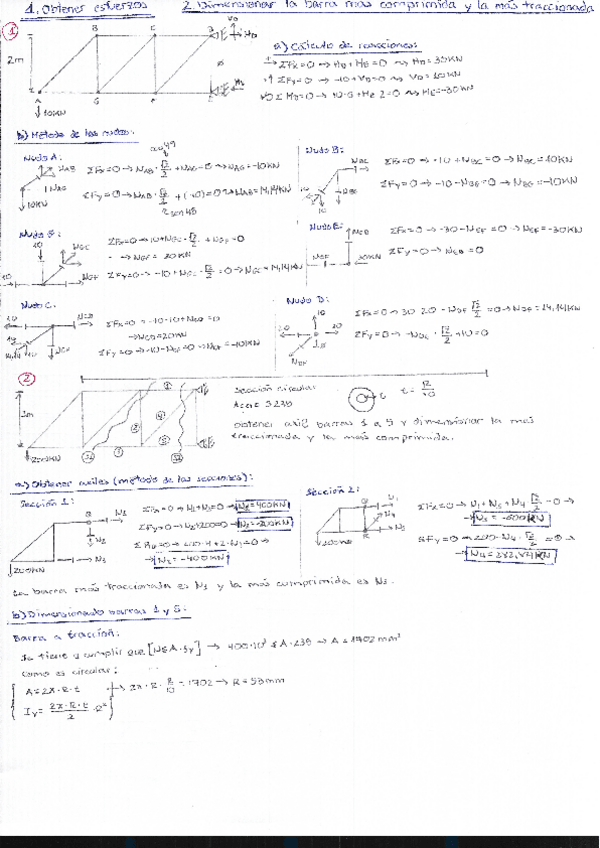 1. Obtener esfuerzos 2. Dimensionar la barra más comprimida y la más traccionada
1
2m
B C D
A G F E
10KN
a) Cálculo de reacciones:
ΣFx=0 → HD+HE=0 → HD=30KN
ΣFy=0 → -10+VD=0 → VD=10KN
ΣMD=0 → 10·6+HE·2=0 → HE=-30KN
b) Método de los nudos:
Nudo A:
ΣFx=0 → NAB·√2/2+NAG=0 → NAG=-10KN
ΣFy=0 → NAB·√2/2+(-10)=0 → NAB=14,14KN
Nudo B:
ΣFx=0 → -10+NBC=0 → NBC=10KN
ΣFy=0 → -10-NBG=0 → NBG=-10KN
ΣFx=0 → 10+NGC·√2/2+NGF=0
→ NGF=-20KN
ΣFy=0 → -10+NGC·√2/2=0 → NGC=14,14KN
Nudo E:
ΣFx=0 → -30-NEF=0 → NEF=-30KN
ΣFy=0 → NED=0
Nudo C:
ΣFx=0 → -10-10+NCD=0
→ NCD=20KN
ΣFy=0 → -10-NCF=0 → NCF=-10KN
Nudo D:
ΣFx=0 → 30-20-NDF·√2/2=0 → NDF=14,14KN
ΣFy=0 → -NDF·√2/2+10=0
2
2m
200KN
Sección circular
Acero S235
t=R/10
obtener axil barras 1 a 5 y dimensionar la más
traccionada y la más comprimida.
a) Obtener axiles (método de las secciones):
Sección 1:
200KN
ΣFx=0 → N1+N3=0 → N1=400KN
ΣFy=0 → → N2=-200KN
→ N3=-400KN
Sección 2:
200KN
ΣFx=0 → N1+N5+N4·√2/2=0 →
→ N5=-600KN
ΣFy=0 → -200+N4·√2/2=0 →
→ N4=282,84KN
La barra más traccionada es N1 y la más comprimida es N5.
b) Dimensionado barras 1 y 5:
Barra a tracción:
Se tiene q cumplir que [N≤A·fy] → 400·10³≤A·235 → A=1702mm²
Como es circular:
A=2π·R·t → 2π·R·R/10=1702 → R=53mm
Iy=2π·R·t/2·R²